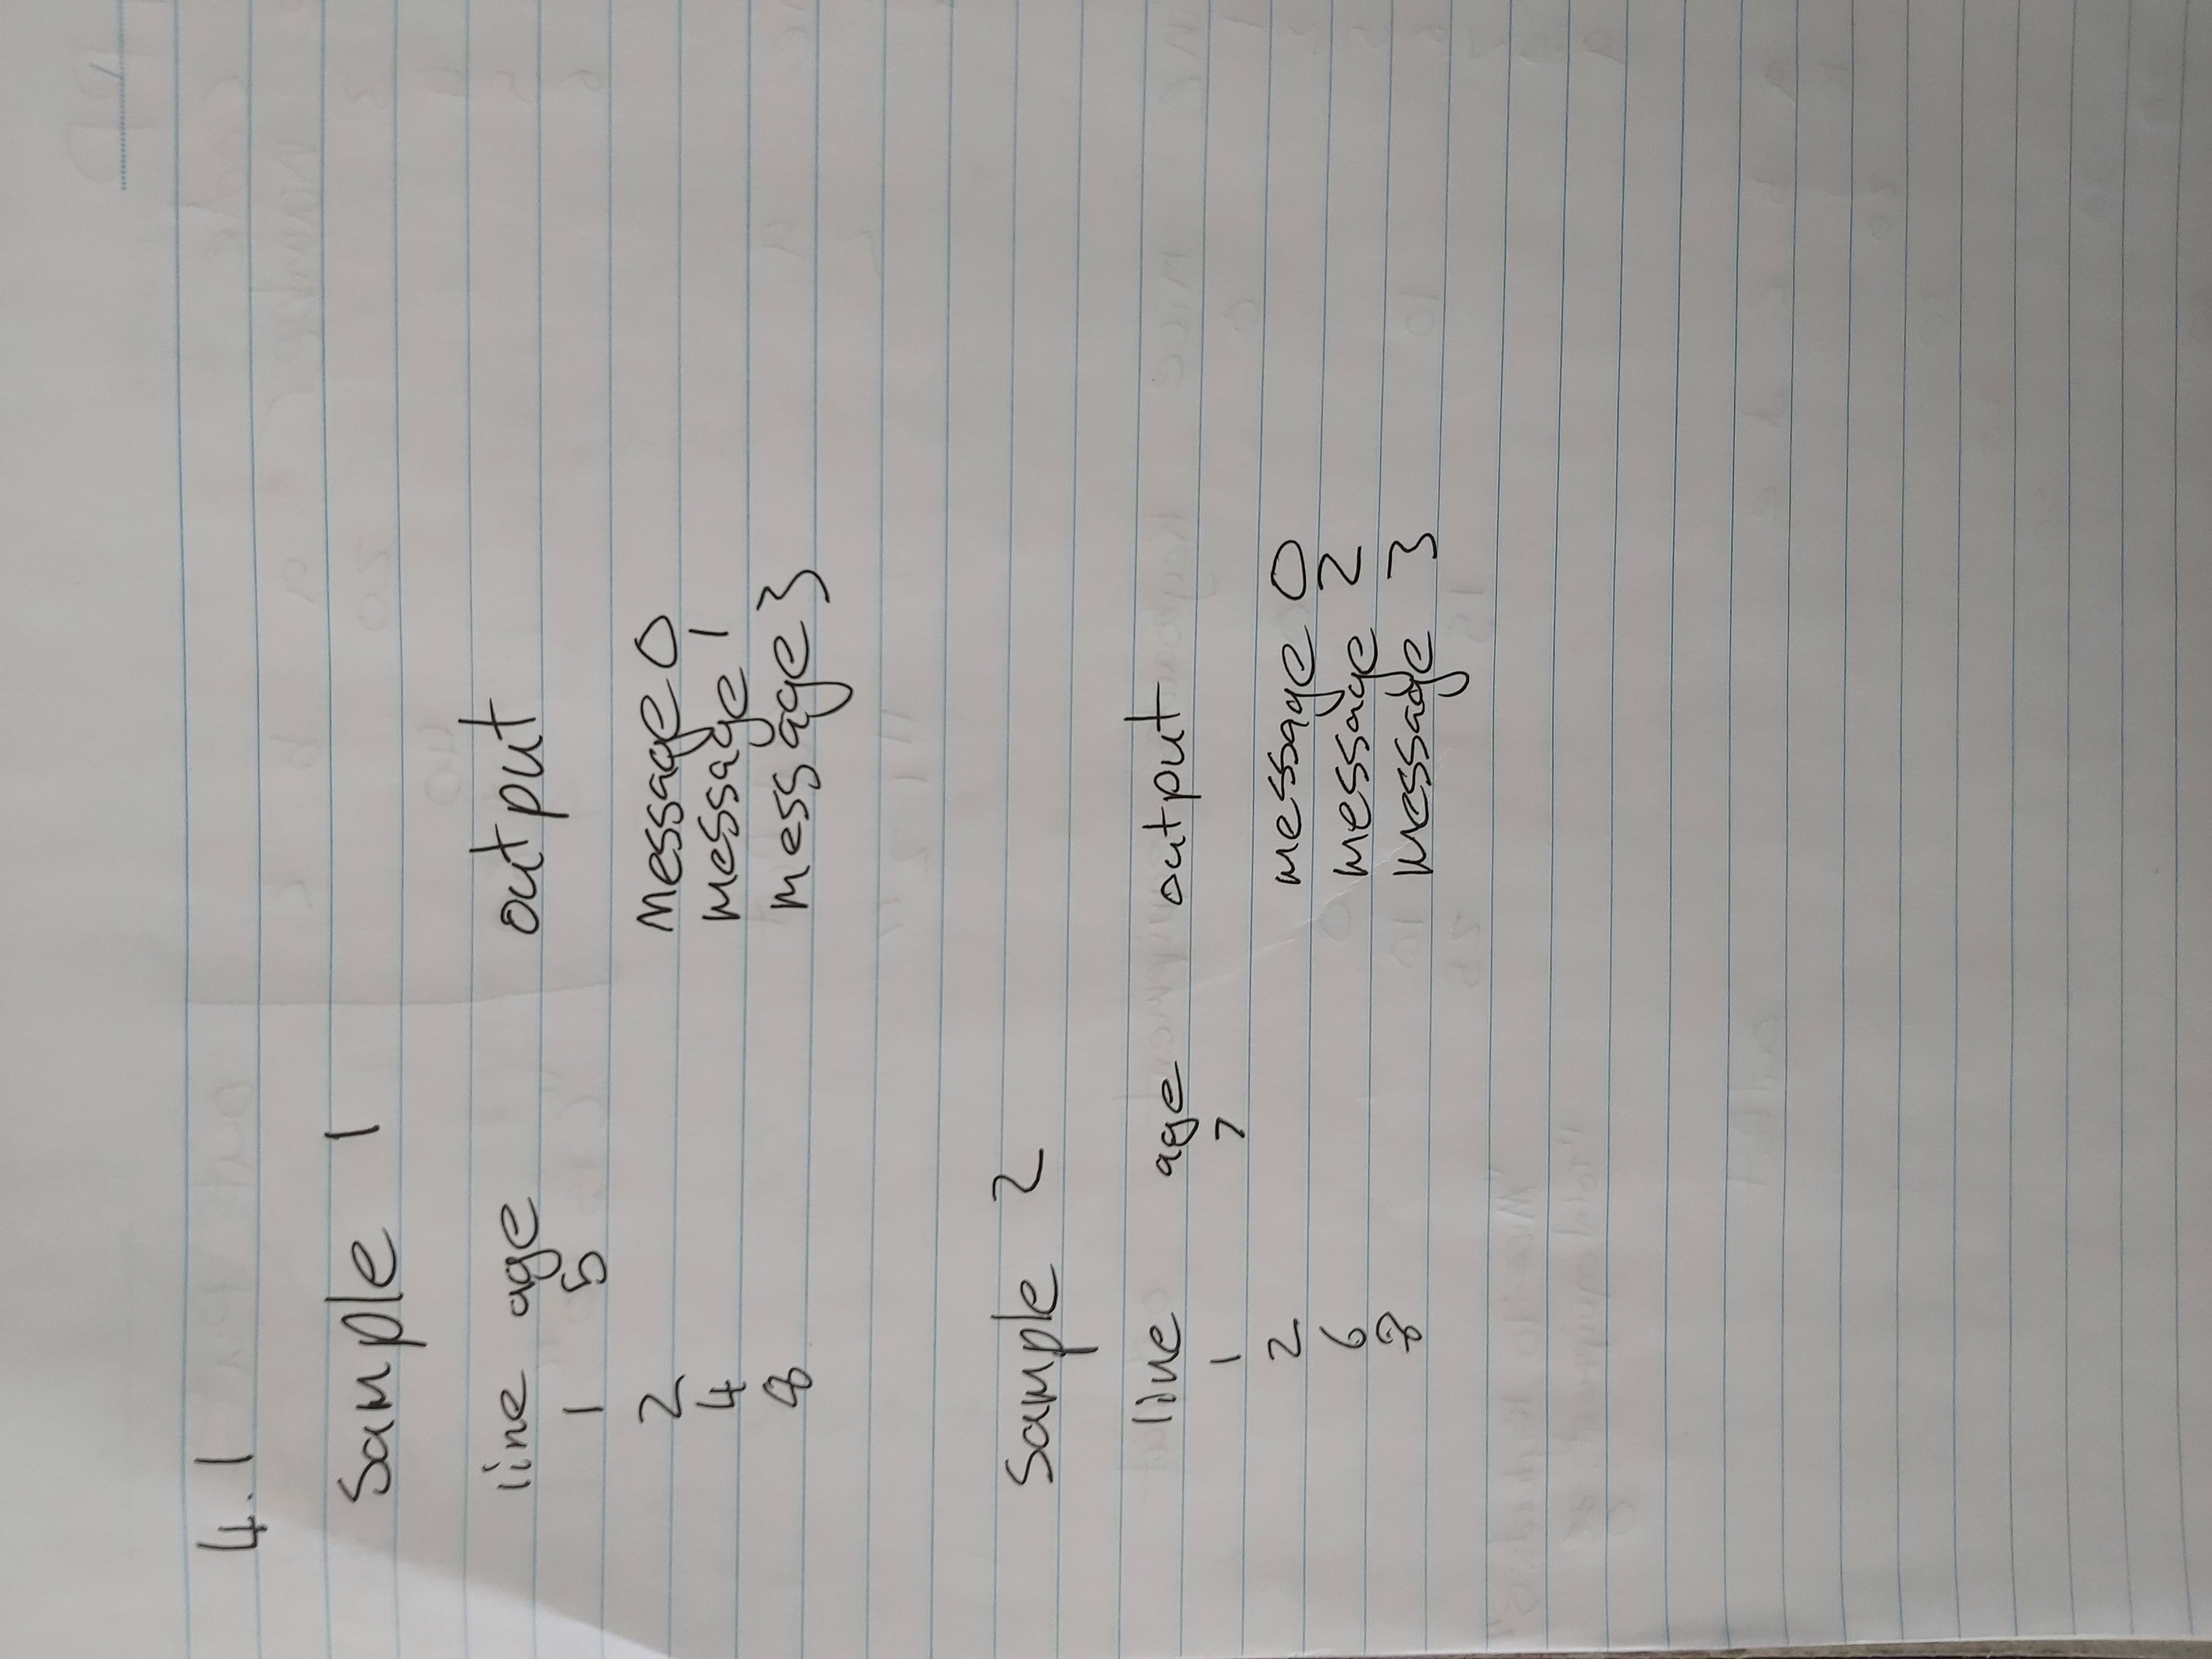 4.1
Sample 1
line age output
1 5
2 Message 0
4 message 1
8 message 3
Sample 2
line age output
1 7
2 message 0
6 message 2
8 message 3